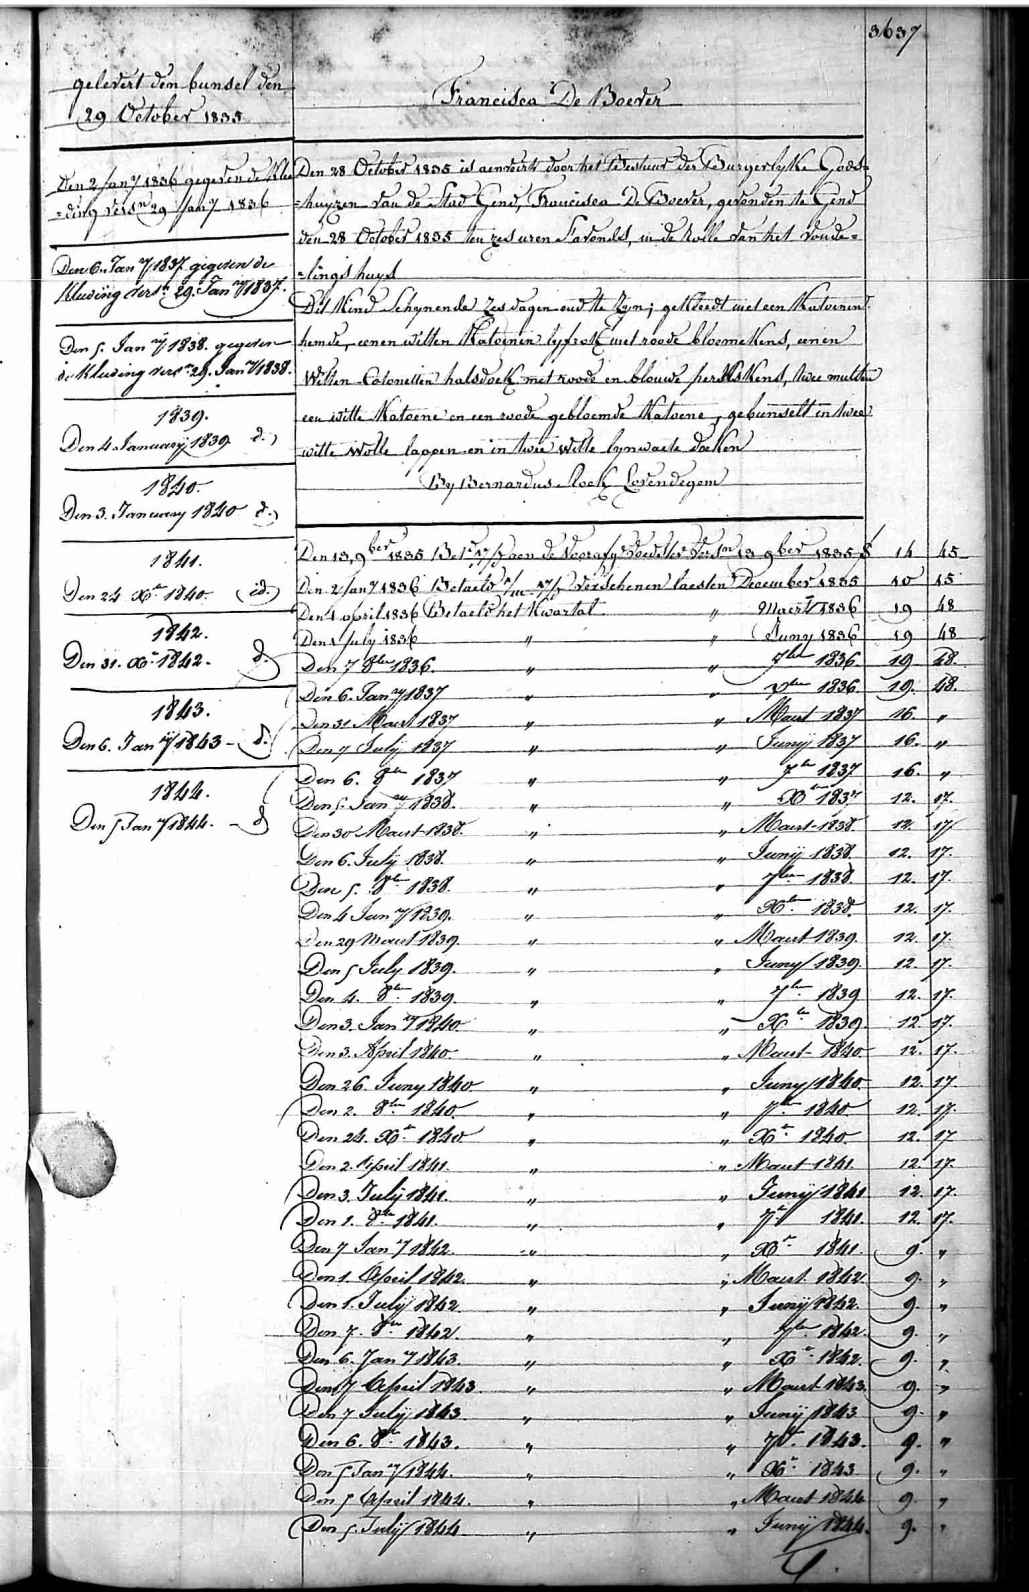 3637
gelevert den bunsel den
29 October 1835
Francisca De Boever
Den 2 Jany 1836 gegeven de Klee
=ding versn 29 Jany 1836
Den 6. Jany 1837 gegeven de
Kleeding versn 29. Jany 1837.
Den 5. Jany 1838. gegeven
de Kleeding versn 29. Jany 1838.
1839.
Den 4 January 1839 d.)
1840.
Den 3. January 1840 d.)
1841.
Den 24 Xr 1840. id.)
1842.
Den 31. Xr 1842. d.)
1843.
Den 6. Jany 1843 - d.
1844.
Den 5 Jany 1844. - d
Den 28 October 1835 is aenveerd door het Bestuur der Burgerlyke Gods=
=huyzen van de Stad Gend, Francisca De Boever, gevonden te Gend
den 28 October 1835 ten zes uren s'avonds, in de Rolle van het vonde=
=lingshuys
Dit Kind schynende zes dagen oud te zyn; gekleedt met een Katoenen
hemde, eenen witten Katoenen lyfrok met roode bloemekens, eenen
witten Cotonetten halsdoek met roode en blouwe perkskens, twee mutsen
een witte Katoene en een roode gebloemde Katoene, gebunselt in twee
witte wolle lappen en in twee witte lynwaete doeken
By Bernardus Lovendegem
Den 13, 9ber 1835 aen de Voedster versn 13 9ber 1835 14 45
Den 2 Jany 1836 Betaeld verschenen laesten December 1835 10 15
Den 1 april 1836 Betaeld het Kwartal " Maert 1836 19 48
Den 1 July 1836 " " Juny 1836 19 48
Den 7 8ber 1836. " " 7ber 1836 19 48.
Den 6. Jany 1837 " " 1836 19. 48.
Den 31 Maert 1837 " " Maert 1837 16. "
Den 7 July 1837 " " Juny 1837 16. "
Den 6. 8ber 1837 " " 7ber 1837 16. "
Den 5. Jany 1838. " " Xr 1837 12. 17.
Den 30 Maert 1838. " " Maert 1838. 12. 17
Den 6. July 1838. " " Juny 1838. 12. 17.
Den 5. 8ber 1838. " " 7ber 1838 12. 17.
Den 4 Jany 1839. " " Xber 1838. 12. 17.
Den 29 Maert 1839. " " Maert 1839. 12. 17.
Den 5 July 1839. " " Juny 1839. 12. 17.
Den 4. 8ber 1839. " " 7ber 1839 12. 17.
Den 3. Jany 1840 " " Xber 1839 12 17.
Den 3. April 1840. " " Maert 1840 12. 17.
Den 26. Juny 1840 " " Juny 1840. 12. 17.
Den 2. 8ber 1840. " " 7ber 1840 12. 17.
Den 24. Xr 1840 " " Xr 1840. 12. 17
Den 2. April 1841. " " Maert 1841. 12. 17.
Den 3. July 1841. " " Juny 1841 12. 17.
Den 1. 8ber 1841. " " 7r 1841. 12. 17.
Den 7 Jany 1842. " " Xr 1841. 9. "
Den 1. April 1842. " " Maert 1842. 9. "
Den 1. July 1842. " " Juny 1842. 9. "
Den 7. 8ber 1842. " " 7ber 1842. 9. "
Den 6. Jany 1843. " " Xr 1842. 9. "
Den 7 April 1843. " " Maert 1843. 9. "
Den 7 July 1843. " " Juny 1843 9. "
Den 6. 8r 1843. " " 7r 1843. 9. "
Den 5 Jany 1844. " " Xr 1843 9. "
Den 5 April 1844. " " Maert 1844 9. "
Den 5. July 1844 " " Juny 1844. 9. "